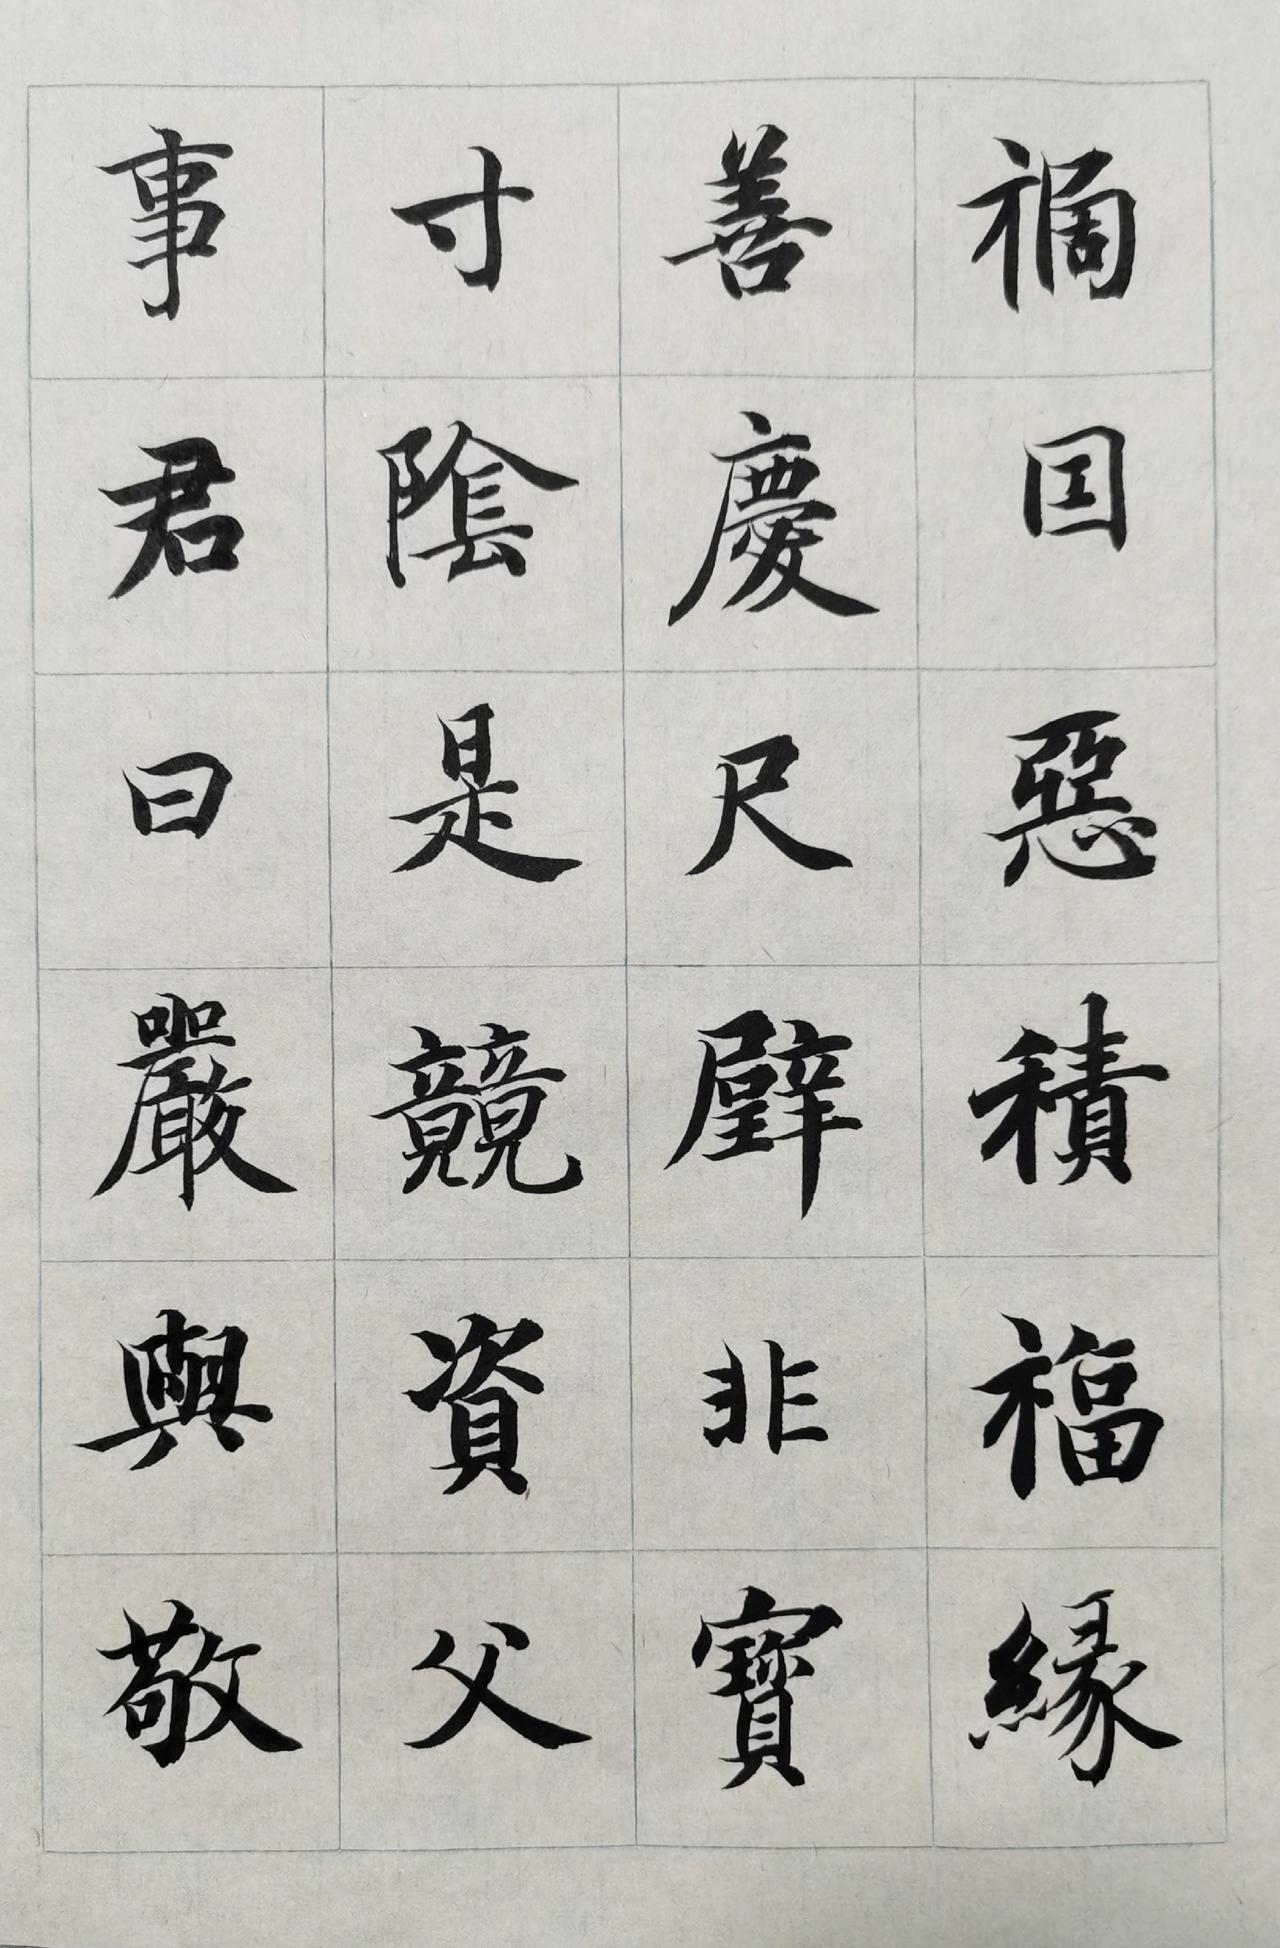 禍因惡積福緣
善慶尺璧非寶
寸陰是競資父
事君曰嚴與敬